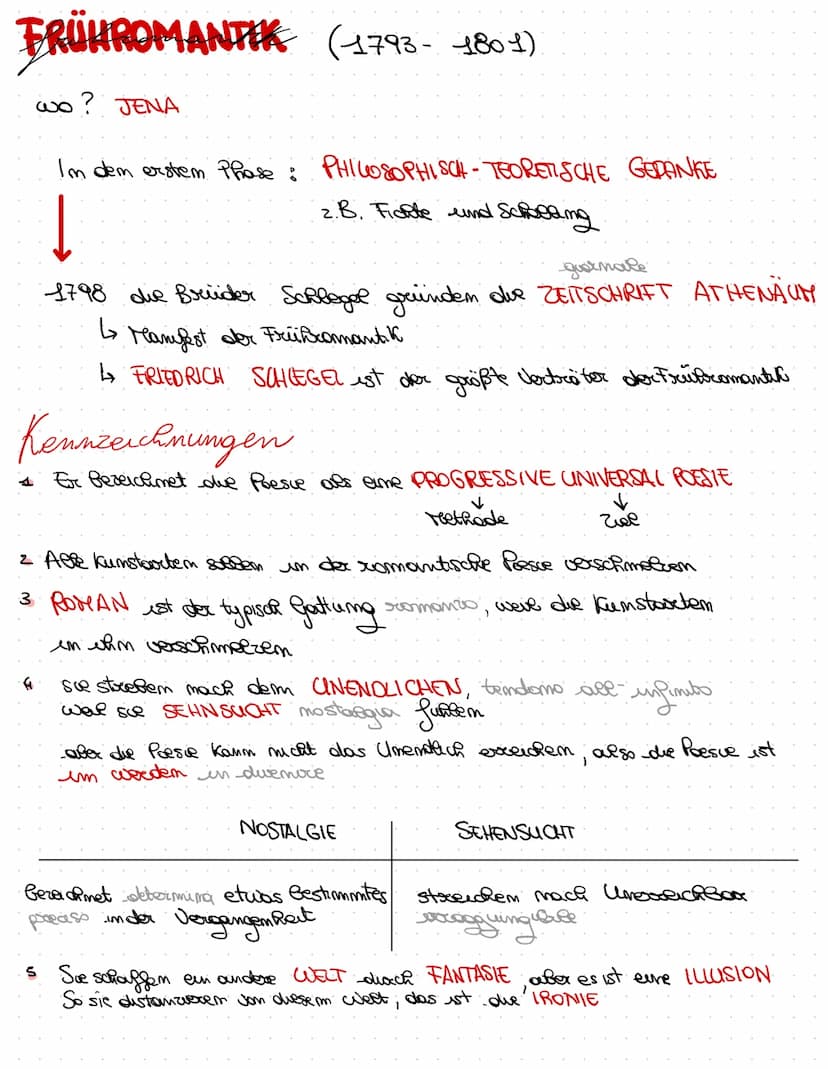 FRÜHROMANTIK (1793 - 1801)
wo? JENA
In dem erstem Phase : PHILOSOPHISCH - TEORETISCHE GEDANKE
z.B. Fichte und Schelling
giornale
1798 die Brüider Schlegel gründen die ZEITSCHRIFT ATHENÄUM
↳ Manifest der Frühromantik
↳ FRIEDRICH SCHLEGEL ist der größte Verträter der Frühromantik
Kennzeichnungen
1 Er bezeichnet die Poesie als eine PROGRESSIVE UNIVERSAL POESIE
↓ ↓
Methode Ziel
2 Alle Kunstarten sollen in der romantische Poesie verschmelzen
3 ROMAN ist der typisch Gattung romanzo, weil die Kunstarten
in ihm verschmelzen
4 sie streben nach dem UNENDLICHEN, tendono all'infinito
weil sie SEHNSUCHT nostalgia fühlen
aber die Poesie kann nicht das Unendlich erreichen, also die Poesie ist
im werden in divenire
NOSTALGIE SEHENSUCHT
bezeichnet determina etwas bestimmtes streichen nach Unerreichbar
preciso in der Vergangenheit irraggiungibile
5 Sie schaffen ein andere WELT durch FANTASIE, aber es ist eine ILLUSION
So sie distanzieren von diesem Welt, das ist die IRONIE